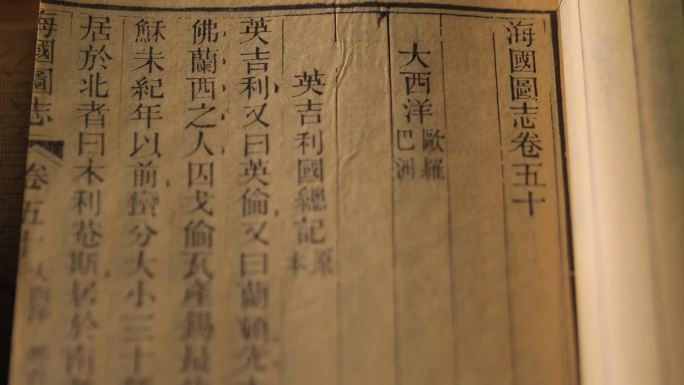 海國圖志卷五十
大西洋 歐羅巴洲
英吉利國總記 原本
英吉利又曰英倫又曰蘭頓先
佛蘭西之人因戈倫瓦產錫最
穌未紀年以前蠻分大小三十
居於北者曰木利菴斯居於南
海國圖志 卷五十 大西洋